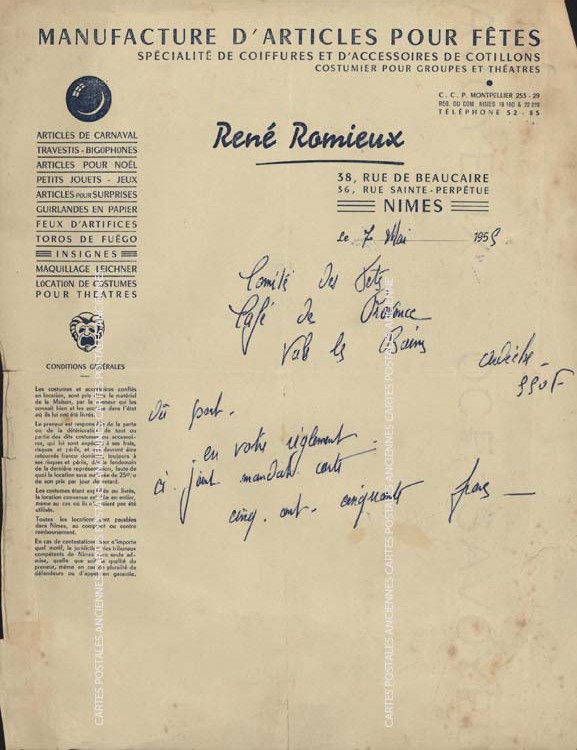 MANUFACTURE D'ARTICLES POUR FÊTES
SPÉCIALITÉ DE COIFFURES ET D'ACCESSOIRES DE COTILLONS
COSTUMIER POUR GROUPES ET THÉATRES
C. C. P. MONTPELLIER 255-29
REG. DU COM. NIMES
TÉLÉPHONE 52-85
René Romieux
38, RUE DE BEAUCAIRE
36, RUE SAINTE-PERPÉTUE
NIMES
ARTICLES DE CARNAVAL
TRAVESTIS - BIGOPHONES
ARTICLES POUR NOËL
PETITS JOUETS - JEUX
ARTICLES POUR SURPRISES
GUIRLANDES EN PAPIER
FEUX D'ARTIFICES
TOROS DE FUÉGO
INSIGNES
MAQUILLAGE LEICHNER
LOCATION DE COSTUMES
POUR THÉATRES
Le 7 Mai 1955
Comité des Fetes
Café de Provence
Vals les Bains
Ardèche
550F
Dû port.
en votre règlement.
ci joint mandat carte
cinq. cent. cinquante francs
CONDITIONS GÉNÉRALES
Les costumes et accessoires confiés
en location, sont pris sur le matériel
de la Maison, par le preneur qui les
connait bien et les accepte dans l'état
où ils lui ont été livrés.
Le preneur est responsable de la perte
ou de la détérioration de tout ou
partie des dits costumes ou accessoi-
res, qui lui sont expédiés à ses frais,
risques et périls, et qui devront être
retournés franco domicile, toujours à
ses risques et périls, dès le lendemain
de la dernière représentation, faute de
quoi la location sera majorée du 25%
de son prix par jour de retard.
Les costumes étant expédiés ou livrés,
la location convenue est due en entier,
même au cas où ils n'auraient pas été
utilisés.
Toutes les locations sont payables
dans Nimes, au comptant ou contre
remboursement.
En cas de contestations pour n'importe
quel motif, la juridiction des tribunaux
compétents de Nimes sera seule ad-
mise, quelle que soit la qualité du
preneur, même en cas de pluralité de
défendeurs ou d'appel en garantie.
CARTES POSTALES ANCIENNES CARTES POSTALES ANCIENNES
CARTES POSTALES ANCIENNES CARTES POSTALES ANCIENNES